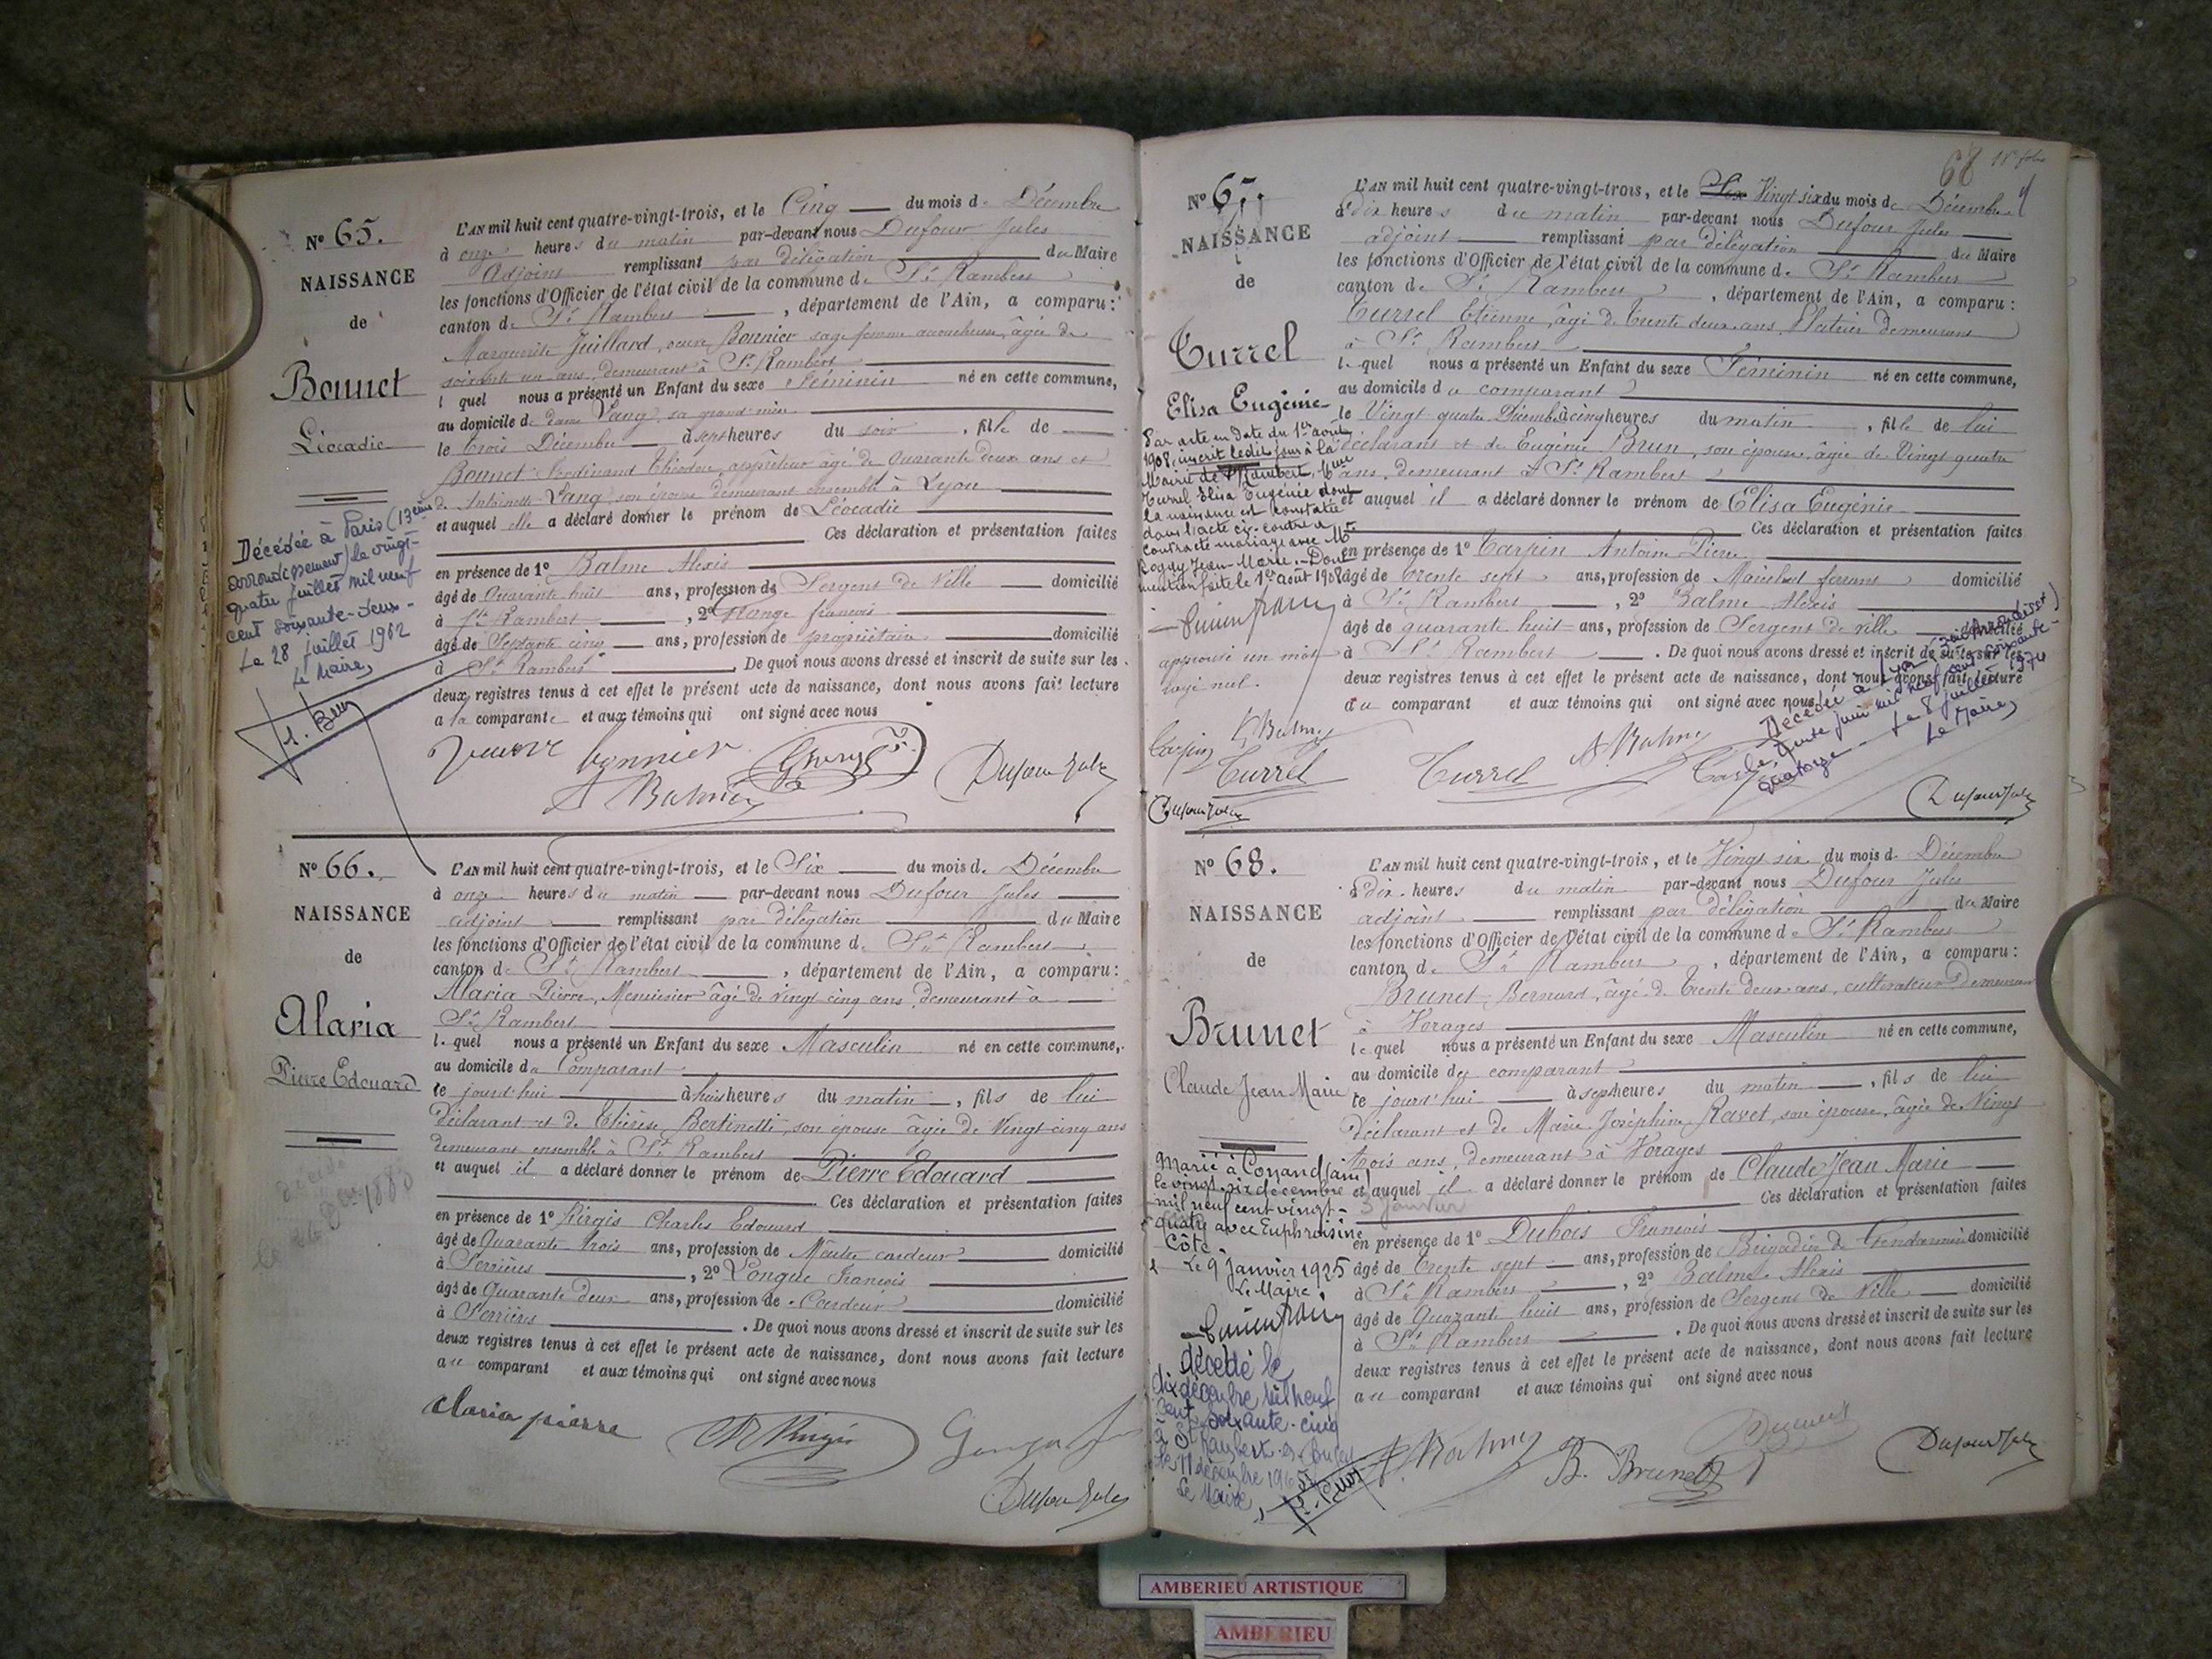 N° 65.
NAISSANCE
de
Bonnet
Léocadie
Décédée à Paris (13ème
arrondissement) le vingt-
quatre juillet mil neuf
cent soixante-deux -
Le 28 juillet 1962
Le Maire,
L'AN mil huit cent quatre-vingt-trois, et le Cinq du mois de Décembre
à onze heures du matin par-devant nous Dufour Jules
Adjoint remplissant par délégation du Maire
les fonctions d'Officier de l'état civil de la commune de St Rambert
canton de St Rambert, département de l'Ain, a comparu:
Marguerite Juillard, veuve Bonnier sage femme accoucheuse, âgée de
soixante un ans, demeurant à St Rambert
l quel nous a présenté un Enfant du sexe Féminin né en cette commune,
au domicile de dame Lang, sa grand mère
le trois Décembre à sept heures du soir, fille de
Bonnet Ferdinand Théodore, appréteur âgé de Quarante deux ans et
de Antoinette Lang son épouse demeurant ensemble à Lyon
et auquel elle a déclaré donner le prénom de Léocadie
Ces déclaration et présentation faites
en présence de 1° Balme Alexis
âgé de Quarante huit ans, profession de Sergent de Ville domicilié
à St Rambert, 2° François
âgé de Septante cinq ans, profession de propriétaire domicilié
à St Rambert. De quoi nous avons dressé et inscrit de suite sur les
deux registres tenus à cet effet le présent acte de naissance, dont nous avons fait lecture
a la comparante et aux témoins qui ont signé avec nous
veuve bonnier
A Balme
Dufour Jules
N° 66.
NAISSANCE
de
Alaria
Pierre Edouard
L'AN mil huit cent quatre-vingt-trois, et le Six du mois de Décembre
à onze heures du matin par-devant nous Dufour Jules
adjoint remplissant par délégation du Maire
les fonctions d'Officier de l'état civil de la commune de St Rambert
canton de St Rambert, département de l'Ain, a comparu:
Alaria Pierre, Menuisier âgé de vingt cinq ans demeurant à
St Rambert
lequel nous a présenté un Enfant du sexe Masculin né en cette commune,
au domicile du Comparant
ce jourd'hui à huit heures du matin, fils de lui
déclarant et de Thérèse Bertinetti, son épouse âgée de Vingt cinq ans
demeurant ensemble à St Rambert
et auquel il a déclaré donner le prénom de Pierre Edouard
Ces déclaration et présentation faites
en présence de 1° Charles Edouard
âgé de Quarante trois ans, profession de Maître cardeur domicilié
à Serrières, 2° Longue François
âgé de Quarante deux ans, profession de Cardeur domicilié
à Serrières. De quoi nous avons dressé et inscrit de suite sur les
deux registres tenus à cet effet le présent acte de naissance, dont nous avons fait lecture
au comparant et aux témoins qui ont signé avec nous
alaria pierre
Dufour Jules
68
N° 67.
NAISSANCE
de
Turrel
Elisa Eugénie
Par acte en date du 1er août
1908, inscrit ledit jour à la
Mairie de St Rambert, Mme
Turrel Elisa Eugénie dont
la naissance est constatée
dans l'acte ci-contre a
contracté mariage avec Mr
Jean-Marie. - Dont
mention faite le 1er août 1908
approuvé un mot
rayé nul.
Turrel
Dufour Jules
L'AN mil huit cent quatre-vingt-trois, et le Six Vingt six du mois de Décembre
à dix heures du matin par-devant nous Dufour Jules
adjoint remplissant par délégation du Maire
les fonctions d'Officier de l'état civil de la commune de St Rambert
canton de St Rambert, département de l'Ain, a comparu:
Turrel Etienne, âgé de trente deux ans, demeurant
à St Rambert
lequel nous a présenté un Enfant du sexe Féminin né en cette commune,
au domicile du comparant
le Vingt quatre Décembre à cinq heures du matin, fille de lui
déclarant et de Eugénie Brun, son épouse, âgée de Vingt quatre
ans, demeurant à St Rambert
et auquel il a déclaré donner le prénom de Elisa Eugénie
Ces déclaration et présentation faites
en présence de 1° Tarpin Antoine Pierre
âgé de trente sept ans, profession de Maréchal ferrant domicilié
à St Rambert, 2° Balme Alexis
âgé de quarante huit ans, profession de Sergent de ville domicilié
à St Rambert. De quoi nous avons dressé et inscrit de suite sur les
deux registres tenus à cet effet le présent acte de naissance, dont nous avons fait lecture
au comparant et aux témoins qui ont signé avec nous
Décédée à Lyon
le trente juin mil neuf cent soixante-
quatorze - Le 8 juillet 1974
Le Maire,
Turrel
A. Balme
Dufour Jules
N° 68.
NAISSANCE
de
Brunet
Claude Jean Marie
Marié à Conand (Ain)
le vingt-six décembre
mil neuf cent vingt-
quatre avec Euphroisine
Côte.
Le 9 Janvier 1925
Le Maire,
décédé le
dix décembre mil neuf
cent soixante-cinq
à St Rambert-en-Bugey
le 11 décembre 1965
Le Maire,
L'AN mil huit cent quatre-vingt-trois, et le Vingt six du mois de Décembre
à dix heures du matin par-devant nous Dufour Jules
adjoint remplissant par délégation du Maire
les fonctions d'Officier de l'état civil de la commune de St Rambert
canton de St Rambert, département de l'Ain, a comparu:
Brunet Bernard, âgé de trente deux ans, cultivateur demeurant
à Vorages
lequel nous a présenté un Enfant du sexe Masculin né en cette commune,
au domicile du comparant
ce jourd'hui à sept heures du matin, fils de lui
déclarant et de Marie Joséphine Ravet, son épouse, âgée de Vingt
trois ans, demeurant à Vorages
et auquel il a déclaré donner le prénom de Claude Jean Marie
Ces déclaration et présentation faites
en présence de 1° Dubois François
âgé de trente sept ans, profession de Brigadier de Gendarmerie domicilié
à St Rambert, 2° Balme Alexis
âgé de Quarante huit ans, profession de Sergent de Ville domicilié
à St Rambert. De quoi nous avons dressé et inscrit de suite sur les
deux registres tenus à cet effet le présent acte de naissance, dont nous avons fait lecture
au comparant et aux témoins qui ont signé avec nous
A. Balme
B. Brunet
Dufour Jules
AMBERIEU ARTISTIQUE
AMBERIEU